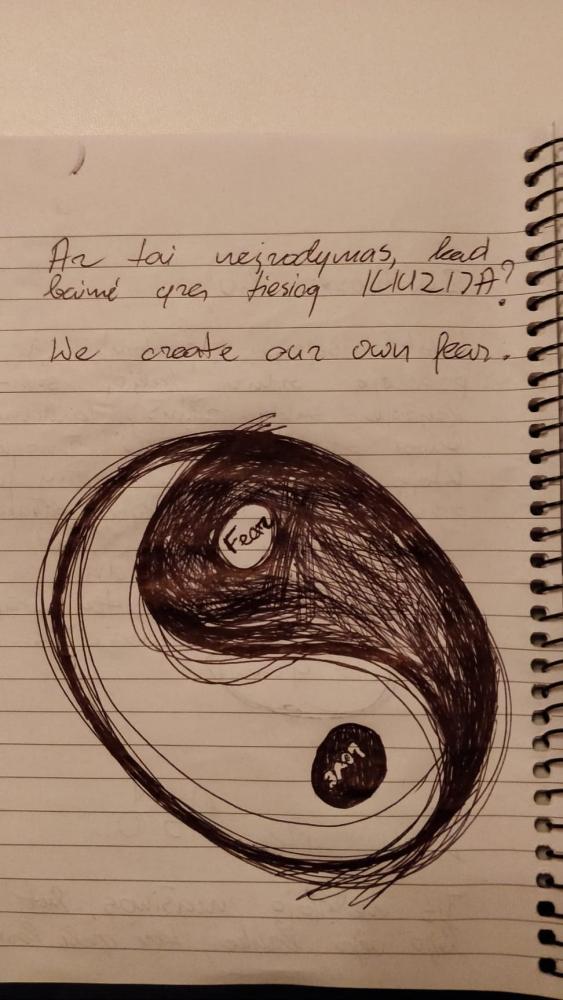 Ar tai neįrodymas, kad
baimė yra tiesiog ILIUZIJA?
We create our own fear.
Fear
Love